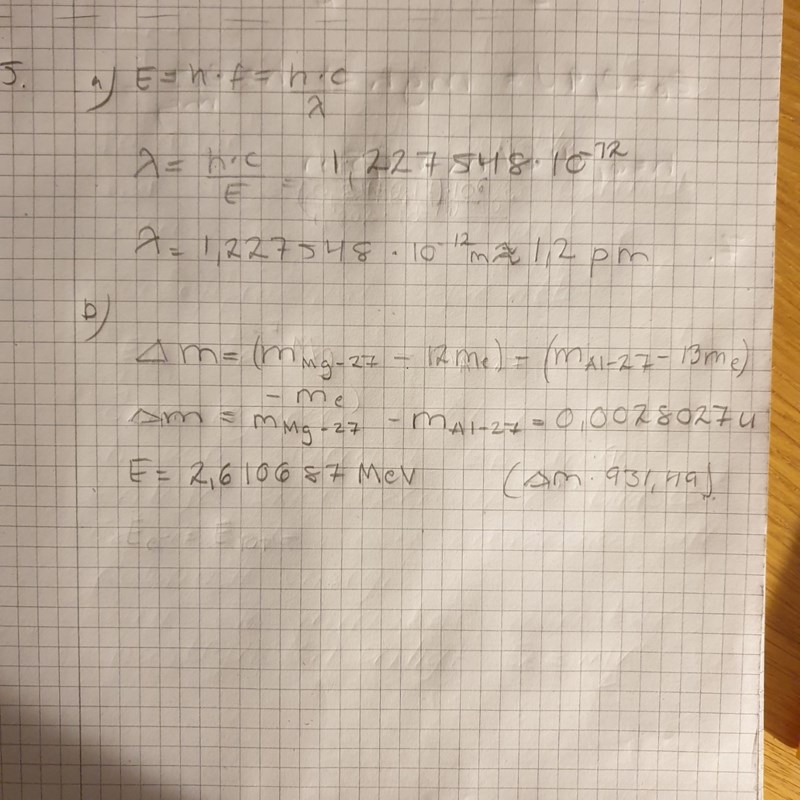 5. a) E = h · f = h · c / λ
λ = h · c / E = 1,227548 · 10^-12
λ = 1,227548 · 10^-12 m ≈ 1,2 pm
b)
Δm = (m Mg-27 - 12me) = (m Al-27 - 13me)
- me)
Δm = m Mg-27 - m Al-27 = 0,0028027 u
E = 2,610687 MeV (Δm · 931,49)